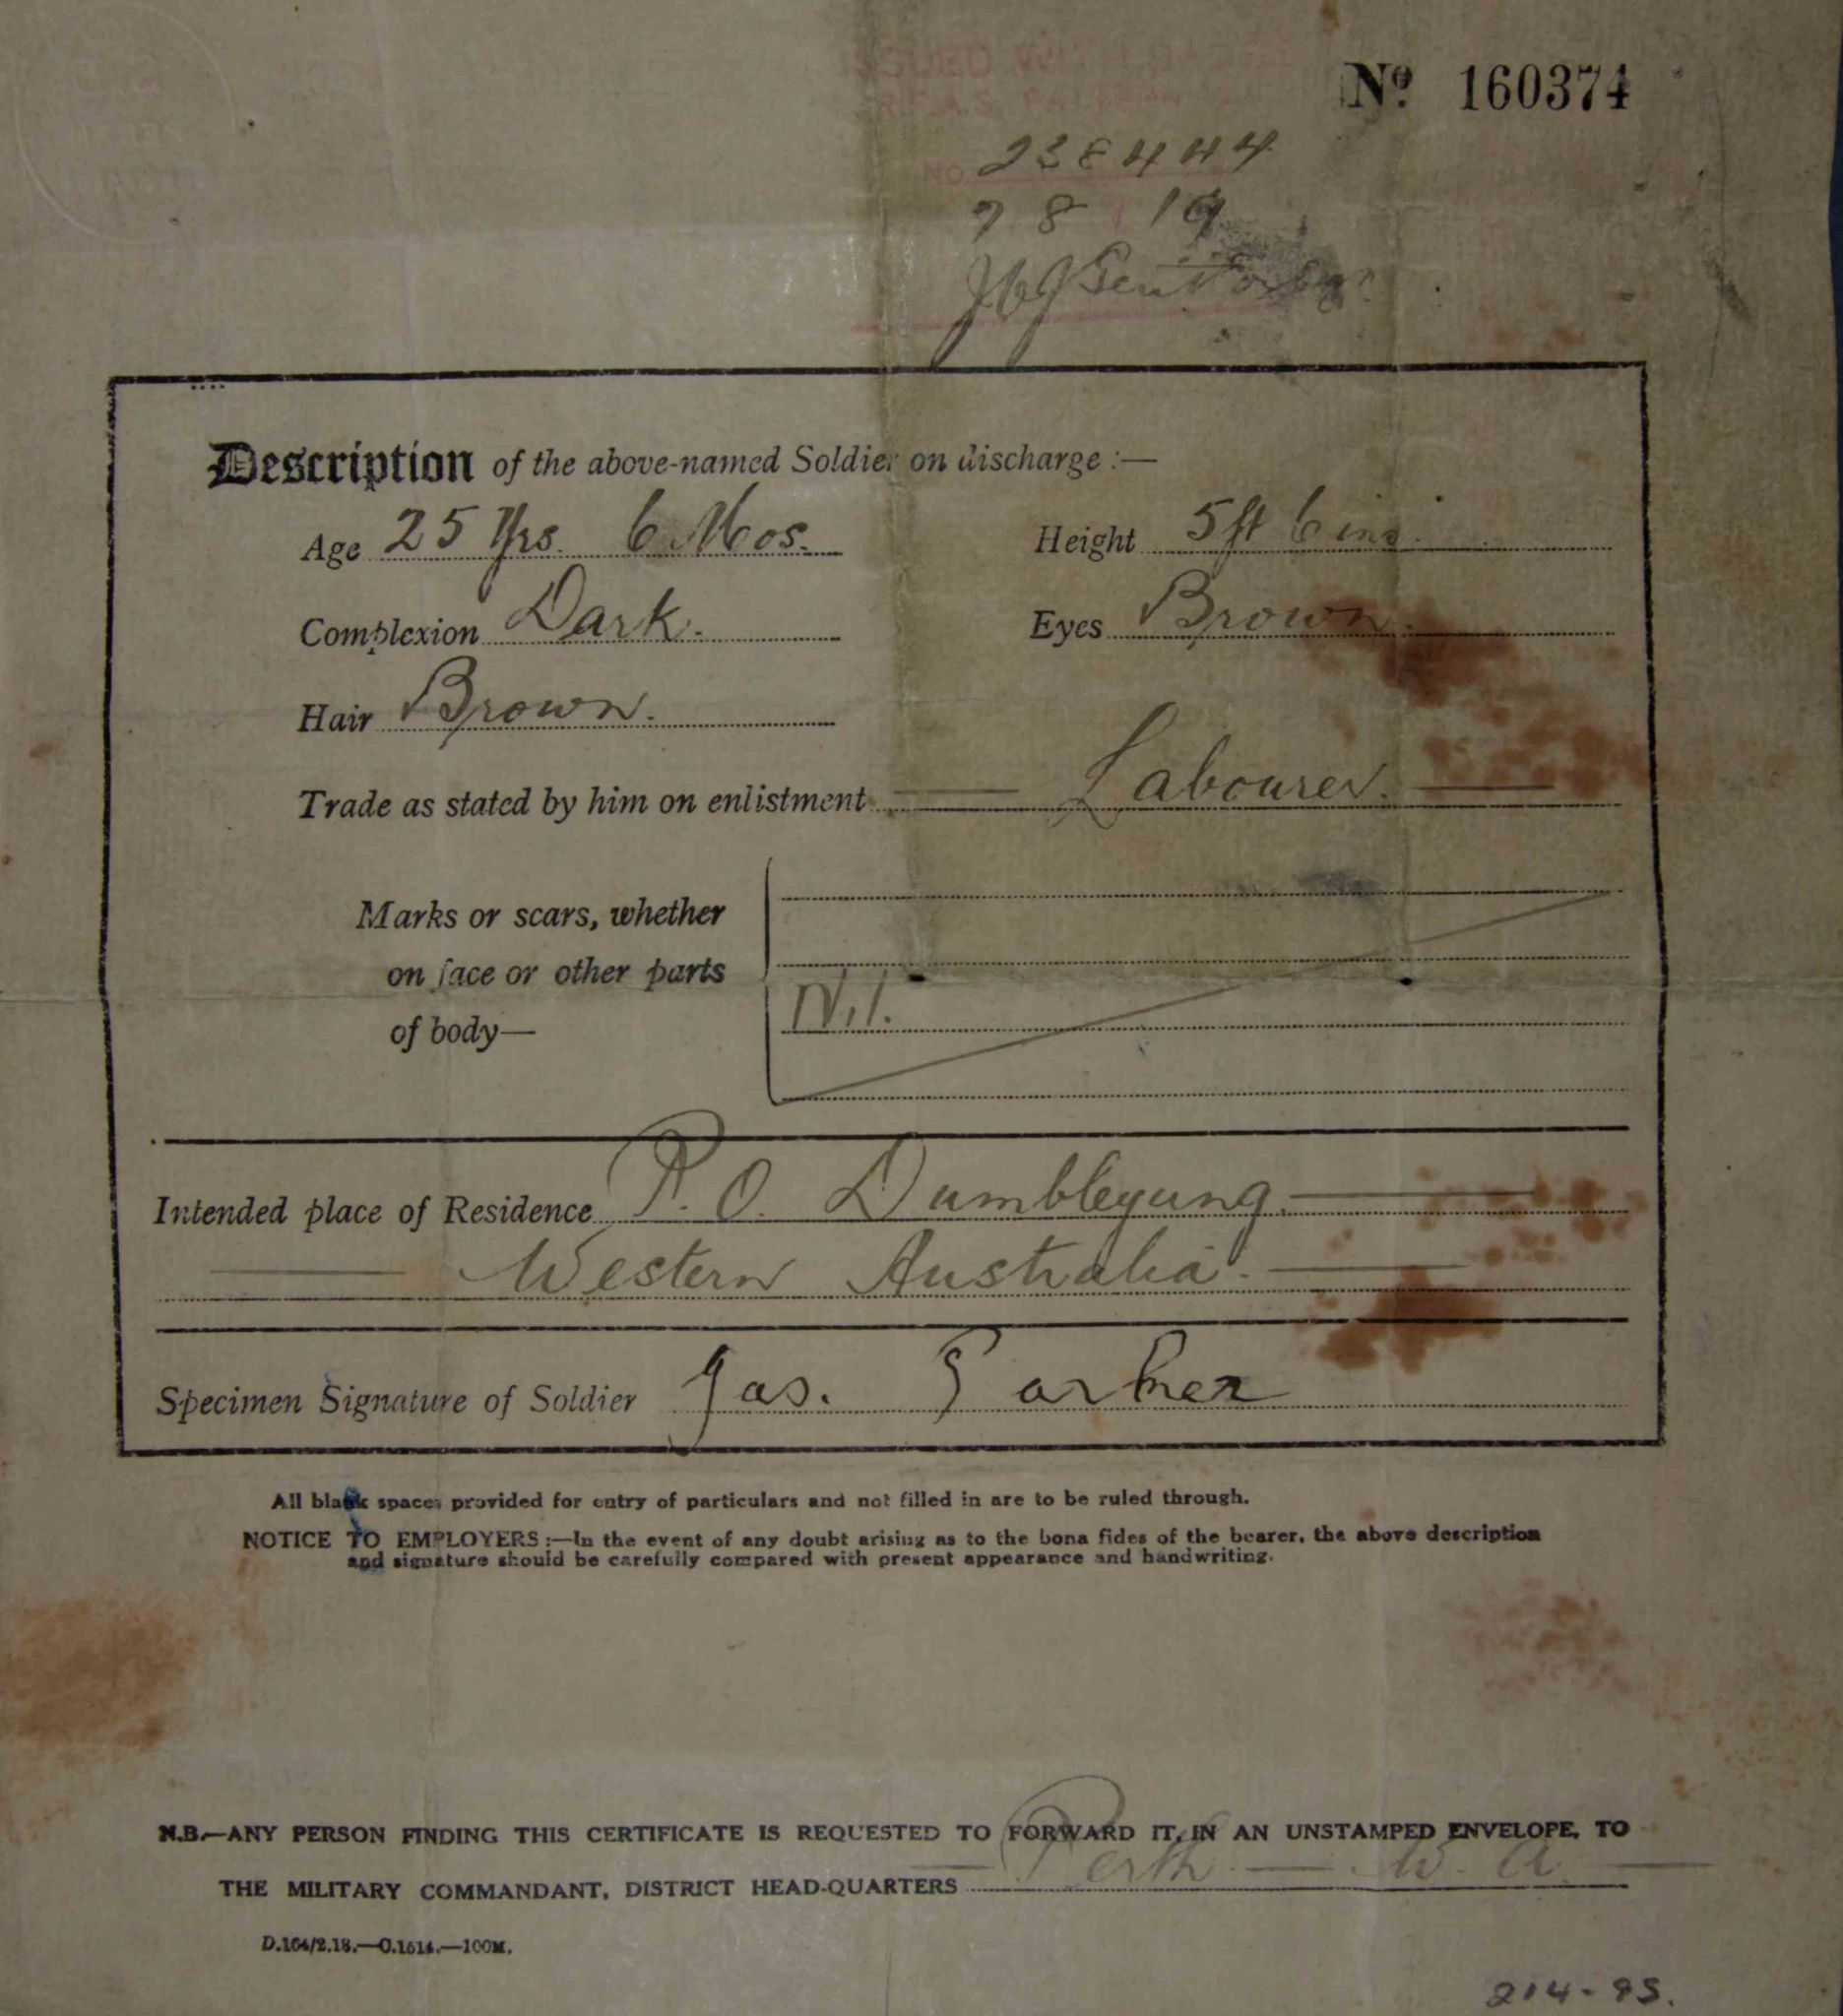 No 160374
ISSUED WITH
R.F.A.S.
No. 238444
7 8 19
Description of the above-named Soldier on discharge :—
Age 25 Yrs. 6 Mos. Height 5ft 6 ins.
Complexion Dark. Eyes Brown.
Hair Brown.
Trade as stated by him on enlistment Labourer.
Marks or scars, whether
on face or other parts
of body— Nil.
Intended place of Residence P. O. Dumbleyung.
Western Australia.
Specimen Signature of Soldier Jas.
All blank spaces provided for entry of particulars and not filled in are to be ruled through.
NOTICE TO EMPLOYERS :—In the event of any doubt arising as to the bona fides of the bearer, the above description
and signature should be carefully compared with present appearance and handwriting.
N.B.—ANY PERSON FINDING THIS CERTIFICATE IS REQUESTED TO FORWARD IT, IN AN UNSTAMPED ENVELOPE, TO
THE MILITARY COMMANDANT, DISTRICT HEAD-QUARTERS Perth — W. A.
D.164/2.18.—C.1614.—100M.
214-95.